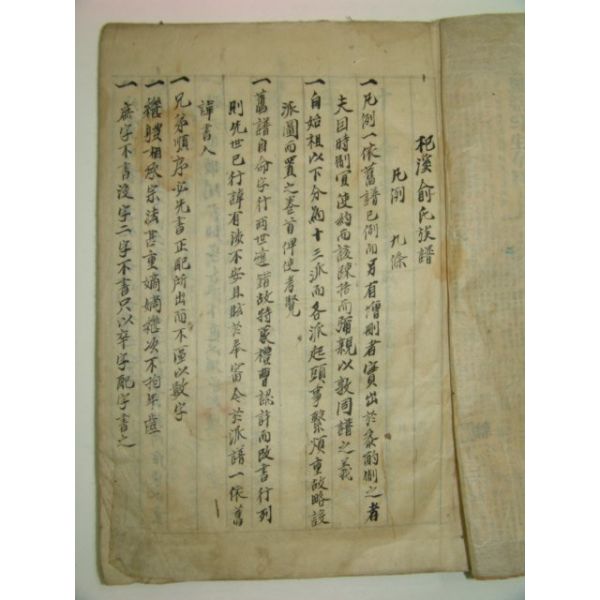 杞溪俞氏族譜
凡例 九條
一凡例一依舊譜已例而另有增刪者實出於參酌刪之者
夫因時制宜使約而該疎者而彌親以敦同譜之義
一自始祖以下分為十三派而各派起頭事繫煩重故略設
派圖而置之卷首俾便考覽
一舊譜自命字行兩世違錯故特蒙禮曹認許而改書行列
則先世已行諱有涉不安且眩於奉審今於派譜一依舊
諱書入
一兄弟順序必先書正配所出而不區以數字
一禮體相承宗法甚重嫡嫡禮次不拘年齒
一庶字不書沒字亡字不書只以卒字配字書之